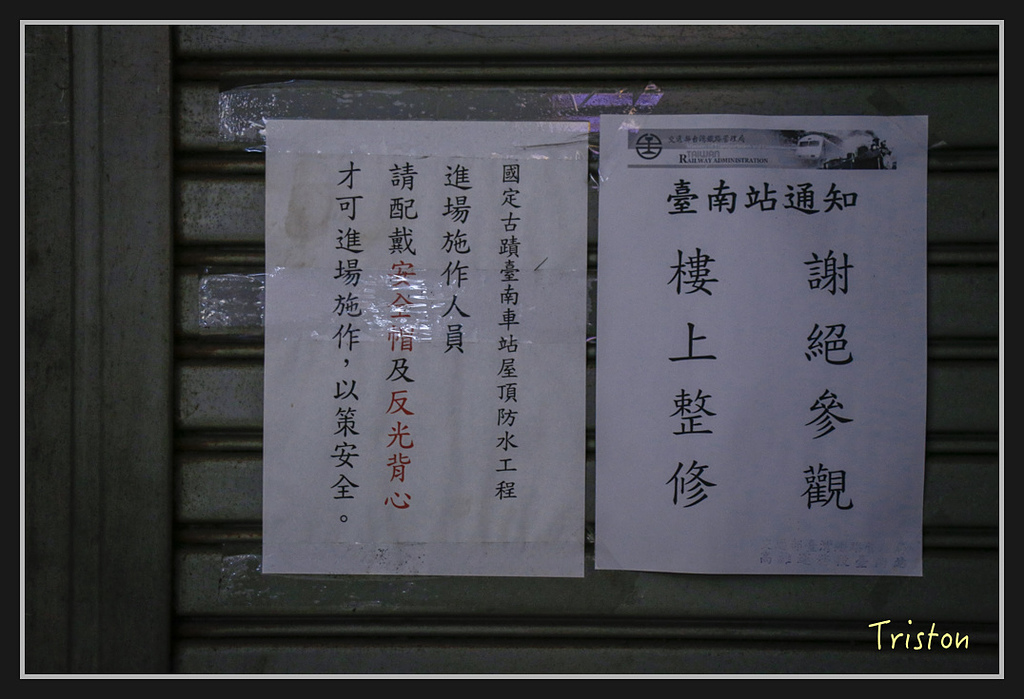 交通部台灣鐵路管理局
TAIWAN
RAILWAY ADMINISTRATION
臺南站通知
謝絕參觀
樓上整修
國定古蹟臺南車站屋頂防水工程
進場施作人員
請配戴安全帽及反光背心
才可進場施作，以策安全。
Triston